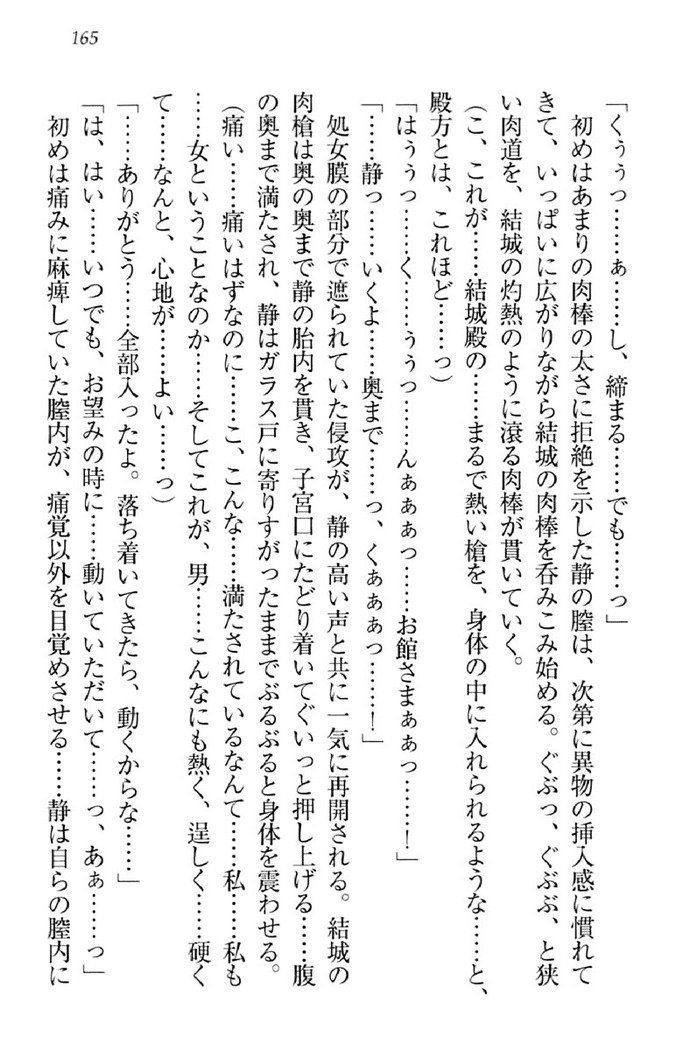 165
「くぅぅっ……ぁ……し、締まる……でも……っ」
初めはあまりの肉棒の太さに拒絶を示した静の膣は、次第に異物の挿入感に慣れて
きて、いっぱいに広がりながら結城の肉棒を呑みこみ始める。ぐぶっ、ぐぶぶ、と狭
い肉道を、結城の灼熱のように滾る肉棒が貫いていく。
(こ、これが……結城殿の……まるで熱い槍を、身体の中に入れられるような……と、
殿方とは、これほど……っ)
「はぅぅっ……く……ぅぅっ……んぁぁぁっ……お館さまぁぁっ……！」
「……静っ……いくよ……奥まで……っ、くぁぁぁっ……！」
処女膜の部分で遮られていた侵攻が、静の高い声と共に一気に再開される。結城の
肉槍は奥の奥まで静の胎内を貫き、子宮口にたどり着いてぐいっと押し上げる……腹
の奥まで満たされ、静はガラス戸に寄りすがったままでぶるぶると身体を震わせる。
(痛い……痛いはずなのに……こ、こんな……満たされているなんて……私……私も
……女ということなのか……そしてこれが、男……こんなにも熱く、逞しく……硬く
て……なんと、心地が……よい……っ)
「……ありがとう……全部入ったよ。落ち着いてきたら、動くからな……」
「は、はい……いつでも、お望みの時に……動いていただいて……っ、あぁ……っ」
初めは痛みに麻痺していた膣内が、痛覚以外を目覚めさせる……静は自らの膣内に